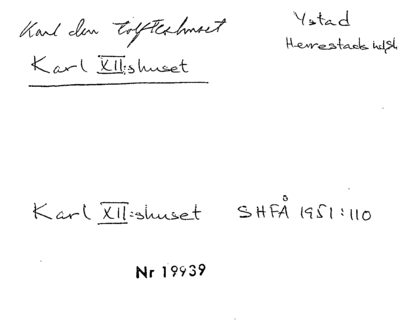 Karl den tolftes huset
Ystad
Herrestads hd, Sk
Karl XII:shuset
Karl XII:shuset SHFÅ 1951:110
Nr 19939